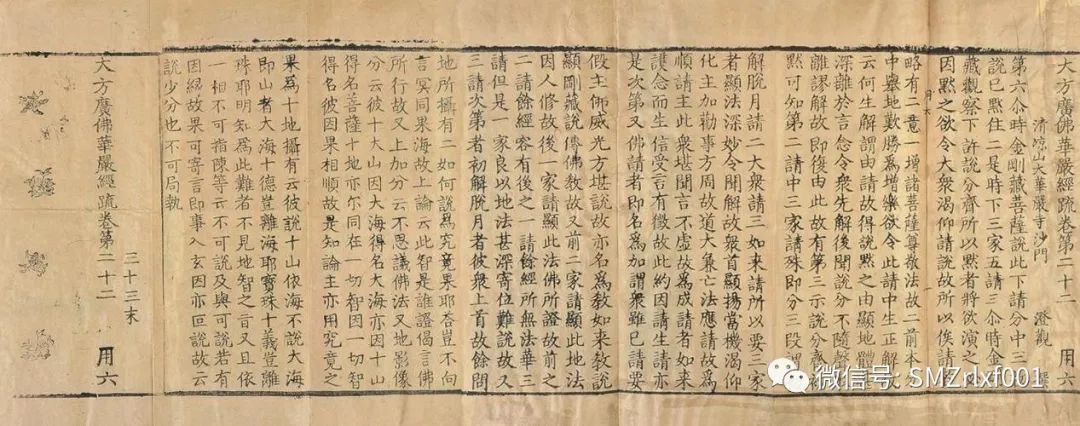 大方廣佛華嚴經䟽卷第二十二 用六
清涼山大華嚴寺沙門 澄觀
第六尒時金剛藏菩薩說此下請分中三
說已黙住二是時下三家五請三尒時金
藏觀察下許說分齊所以黙者將欲演之
因黙之欲令大衆渴仰請說故所以俟請
略有二意一增諸菩薩尊敬法故二前本
中舉地歎勝爲增樂欲令此請中生正解
云何生解謂由請故得說黙之由顯地體
深離於言念令衆先解後聞說分不隨聲
離謬解故即復由此故有第三示說分
黙可知第二請中三家請殊即分三段謂
解脫月請二大衆請三如來請所以要三家
者顯法深妙令聞解故衆首顯揚當機渴仰
化主加勸事方周故道大兼亡法應請故爲
順請主此衆堪聞言不虛故爲成請者如來
護念而生信受言有徵故此約因請生請亦
是次第又佛請者即名爲加謂衆雖已請要
假主佛威光方堪說故亦名爲教如來教說
顯剛藏說傳佛教故又前二家請顯此地法
因人修故後一家請顯此法佛所證故前之
二請餘經容有後之一請餘經所無法華三
請但是一家良以地法甚深寄位難說故又
三請次第者初解脫月者彼衆上首故餘問
地所攝有二如何說爲究竟果耶荅豈不向
言冥同果海故上論云此智是誰證偈言佛
所行故又上加分云不思議佛法又地影像
分云彼十大山因大海得名大海亦因十山
得名菩薩十地亦尒同在一切智因一切智
得名彼因果相順故是知論主亦用究竟之
果爲十地攝有云彼說十山依海不說大海
即山者大海十德豈離海耶寶珠十義豈離
珠耶明知爲此難者不見地智之言又且依
一相不可指陳等云不可說及與可說若依
因緣故果可寄言即事入玄因亦叵說故云
說少分也不可局執
三十三末
大方廣佛華嚴經䟽卷第二十二 用六
微信号: SMZrlxf001